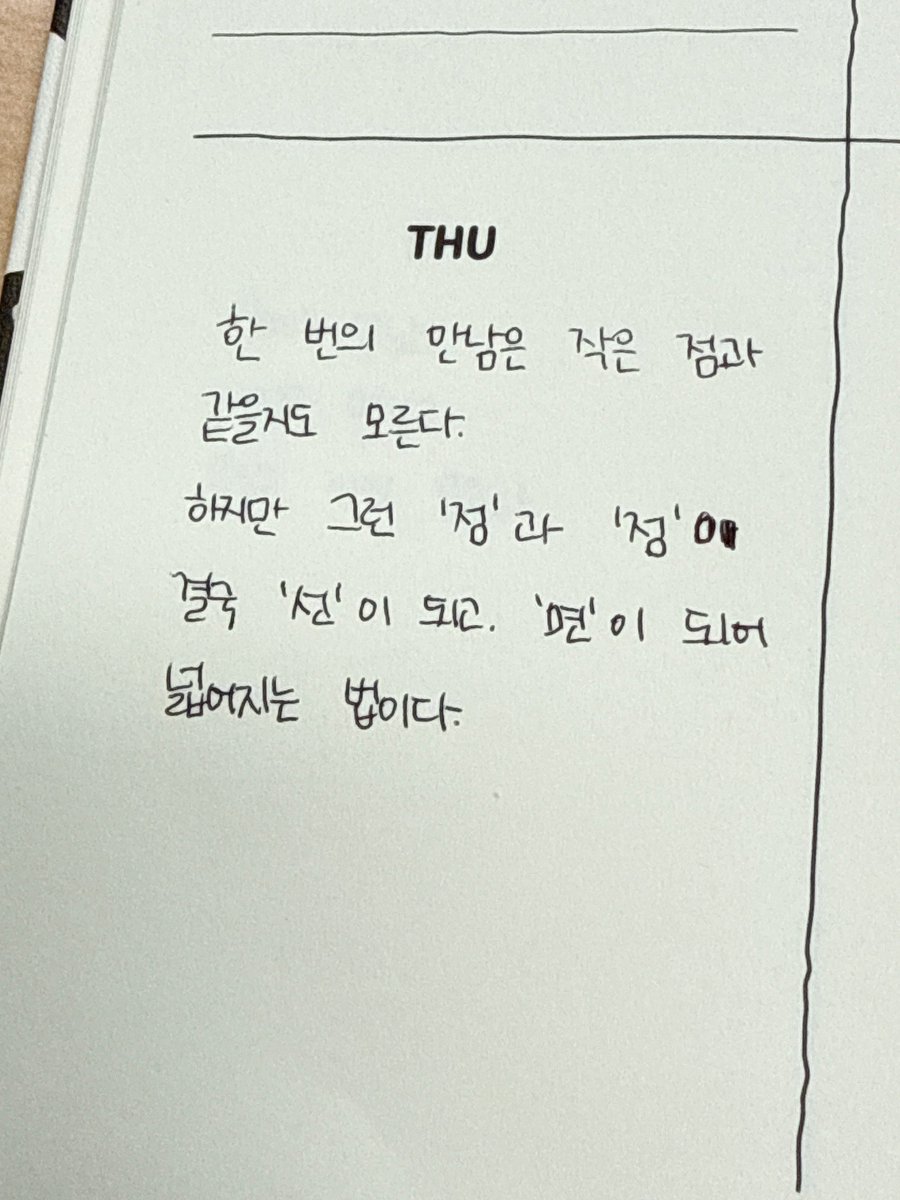 THU
한 번의 만남은 작은 점과
같을지도 모른다.
하지만 그런 '점'과 '점'이
결국 '선'이 되고. '면'이 되어
넓어지는 법이다.